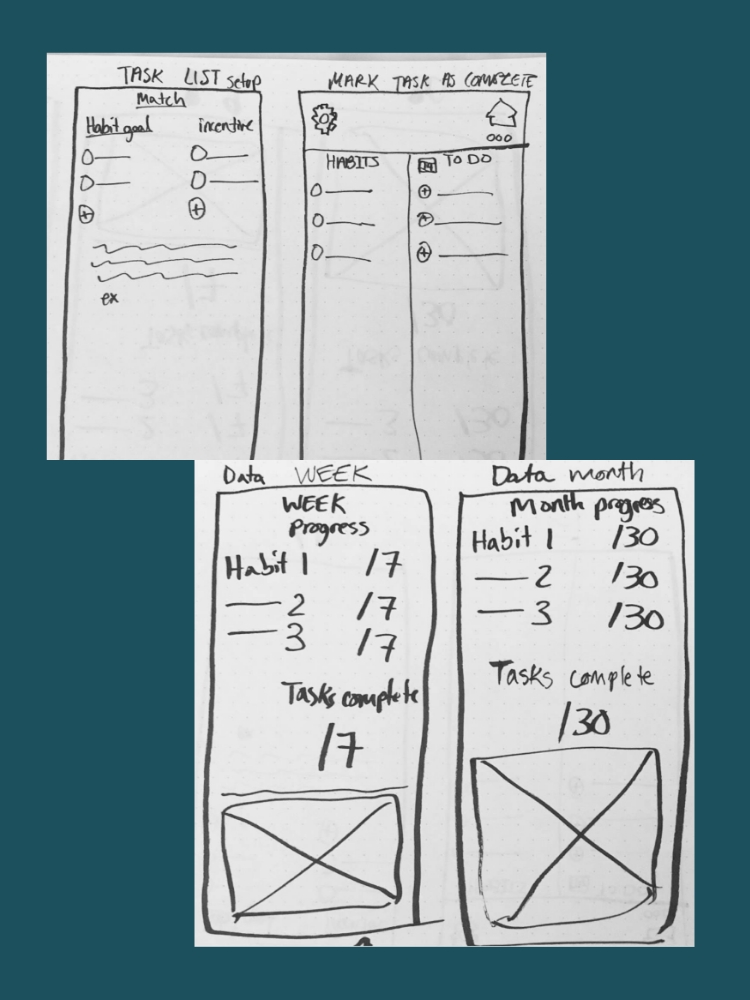 TASK LIST setup
Match
Habit goal incentive
ex
MARK TASK AS COMPLETE
HABITS
TO DO
Data WEEK
WEEK
Progress
Habit 1 /7
2 /7
3 /7
Tasks complete
/7
Data month
Month progress
Habit 1 /30
2 /30
3 /30
Tasks complete
/30